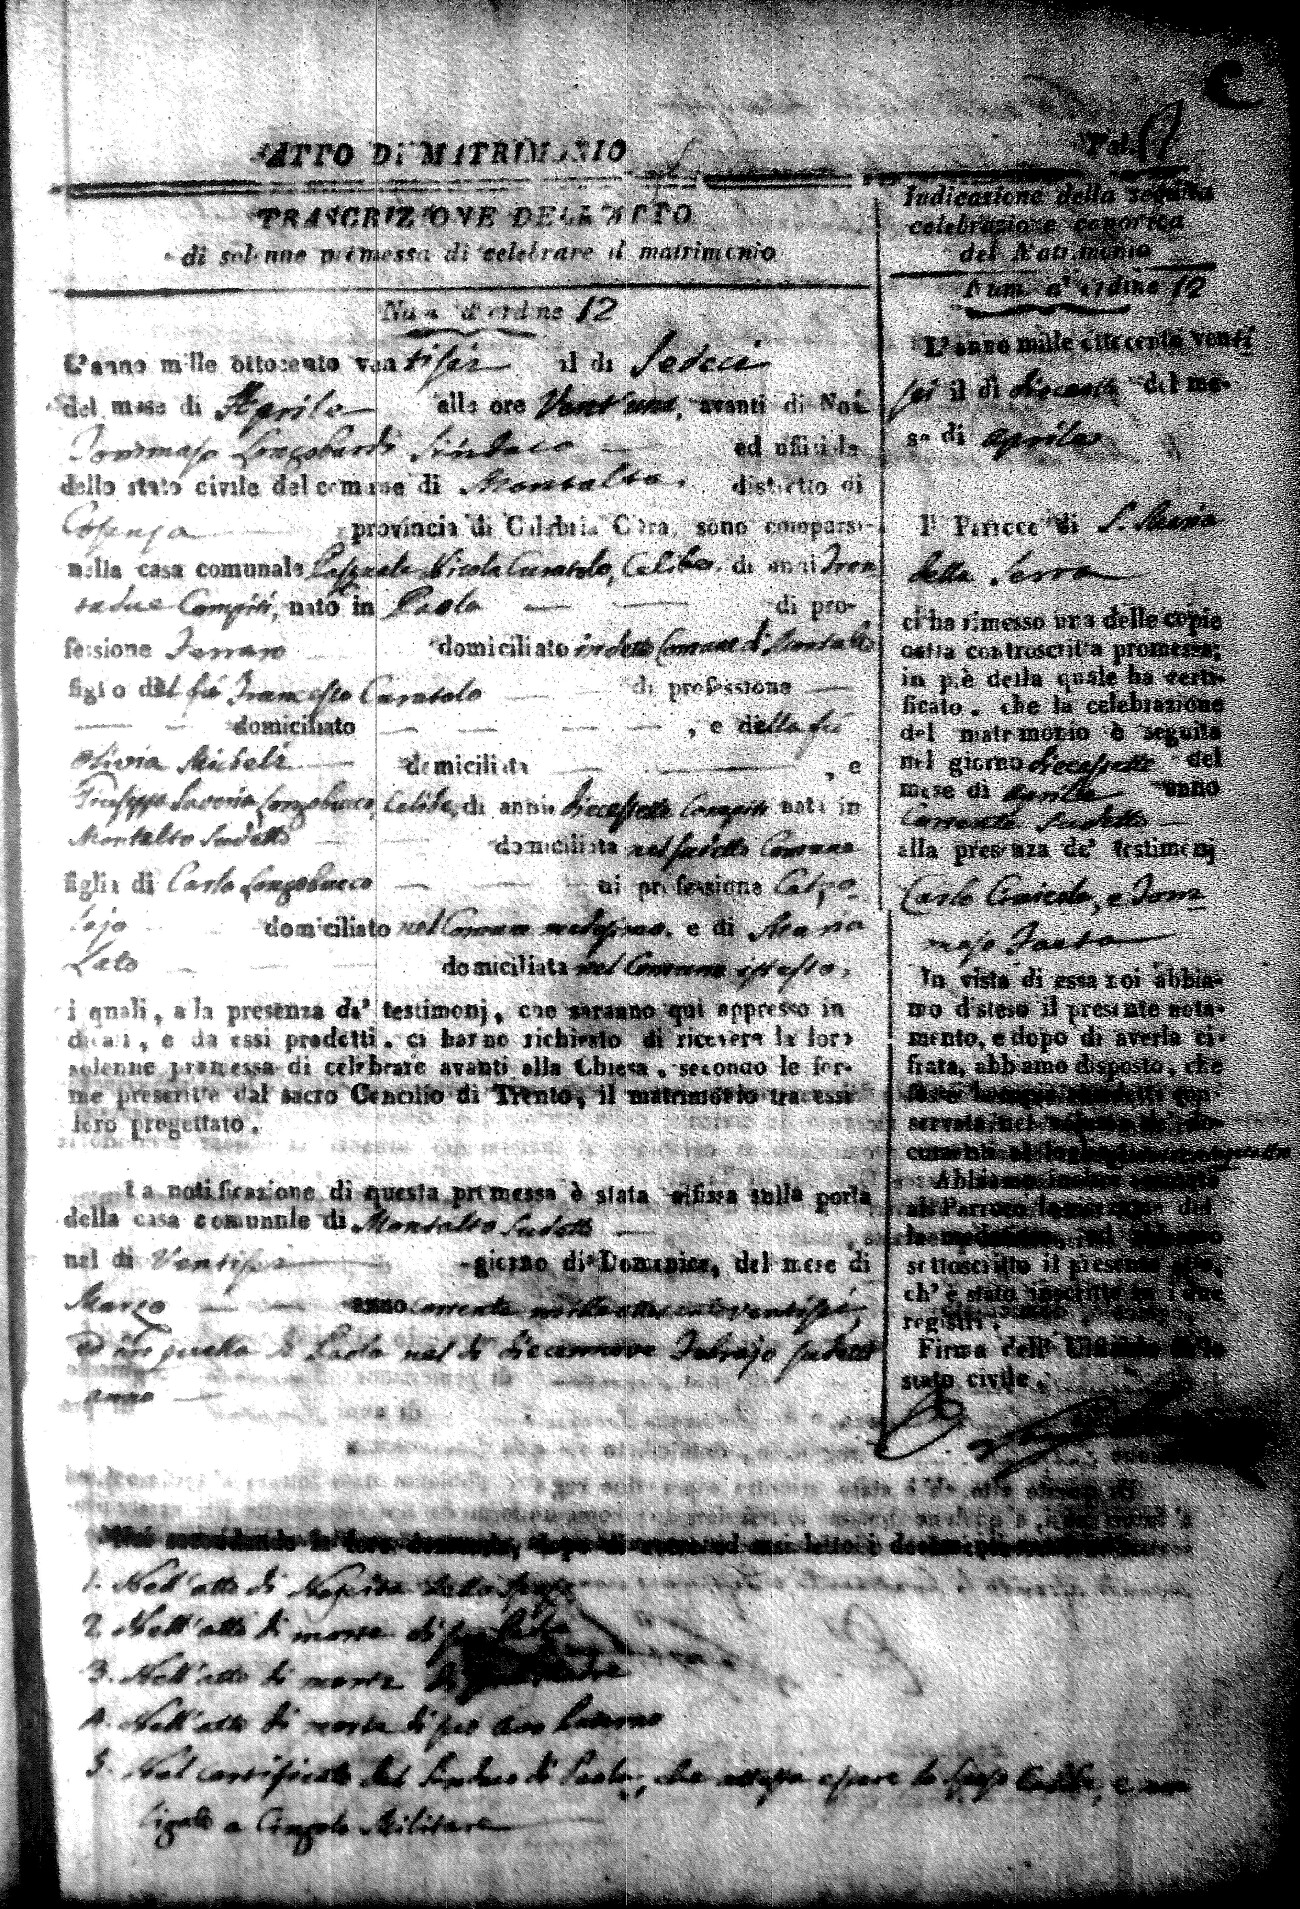 ATTO DI MATRIMONIO
TRASCRIZIONE DELL'ATTO
di solenne promessa di celebrare il matrimonio
Num. d'ordine 12
L'anno mille ottocento ventisei il di Sedeci
del mese di Aprile alle ore Vent'una, avanti di Noi
Tommaso Longobardi Sindaco ed uffiziale
dello stato civile del comune di Montalto distretto di
Cosenza provincia di Calabria Citra, sono comparsi
nella casa comunale Pasquale Nicola Curatolo, Celibe di anni Tren
tadue Compiti, nato in Paola di pro-
fessione Ferraro domiciliato in detto Comune di Montalto
figlio del fù Francesco Curatolo di professione
domiciliato , e della fù
Olivia Micheli domiciliata , e
Giuseppa Saveria Longobucco, Celibe, di anni diecessette Compiti nata in
Montalto Sudetto domiciliata nel sudetto Comune
figlia di Carlo Longobucco di professione Calzo
lajo domiciliato nel Comune medesimo, e di Maria
Lato domiciliata nel Comune istesso,
i quali, a la presenza de' testimonj, che saranno qui appresso in
dicati, e da essi prodetti, ci hanno richiesto di ricevere la loro
solenne promessa di celebrare avanti alla Chiesa, secondo le for-
me prescritte dal sacro Concilio di Trento, il matrimonio tra essi
loro progettato.
La notificazione di questa promessa è stata affissa sulla porta
della casa comunale di Montalto Sudetto
nel di Ventisei giorno di Domenica, del mese di
Marzo anno corrente mille ottocento ventisei,
ed in quella di Paola nel di diecennove Febrajo sudetto
anno
Noi secondando la loro domanda, dopo di aver ad essi letto i documenti
1. Nell'atto di Nascita dello sposo
2. Nell'atto di morte di suo Padre
3. Nell'atto di morte di
4. Nell'atto di morte di suo avo Paterno
5. Nel certificato del Sindaco di Paola, che attesta essere lo sposo Celibe, e non
ligato a Cingolo Militare
Fol.
Indicazione della seguita
celebrazione canonica
del Matrimonio
Num. d'ordine 12
L'anno mille ottocento venti
sei il dì diecessette del me-
se di aprile
Il Parroco di S. Maria
della Serra
ci ha rimesso una delle copie
della controscritta promessa;
in piè della quale ha certi-
ficato, che la celebrazione
del matrimonio è seguita
nel giorno diecessette del
mese di Aprile anno
Corrente sudetto
alla presenza de' testimonj
Carlo Conicola, e Tom
maso Fauto
In vista di essa noi abbia-
mo disteso il presente nota-
mento, e dopo di averla ci-
frata, abbiamo disposto, che
servata nel volume de' do-
cumenti al foglio
Abbiamo inoltre accusato
al Parroco la ricezione del
la medesima, ed abbiamo
sottoscritto il presente atto,
ch'è stato inscritto su i due
registri.
Firma dell' Uffiziale dello
stato civile.